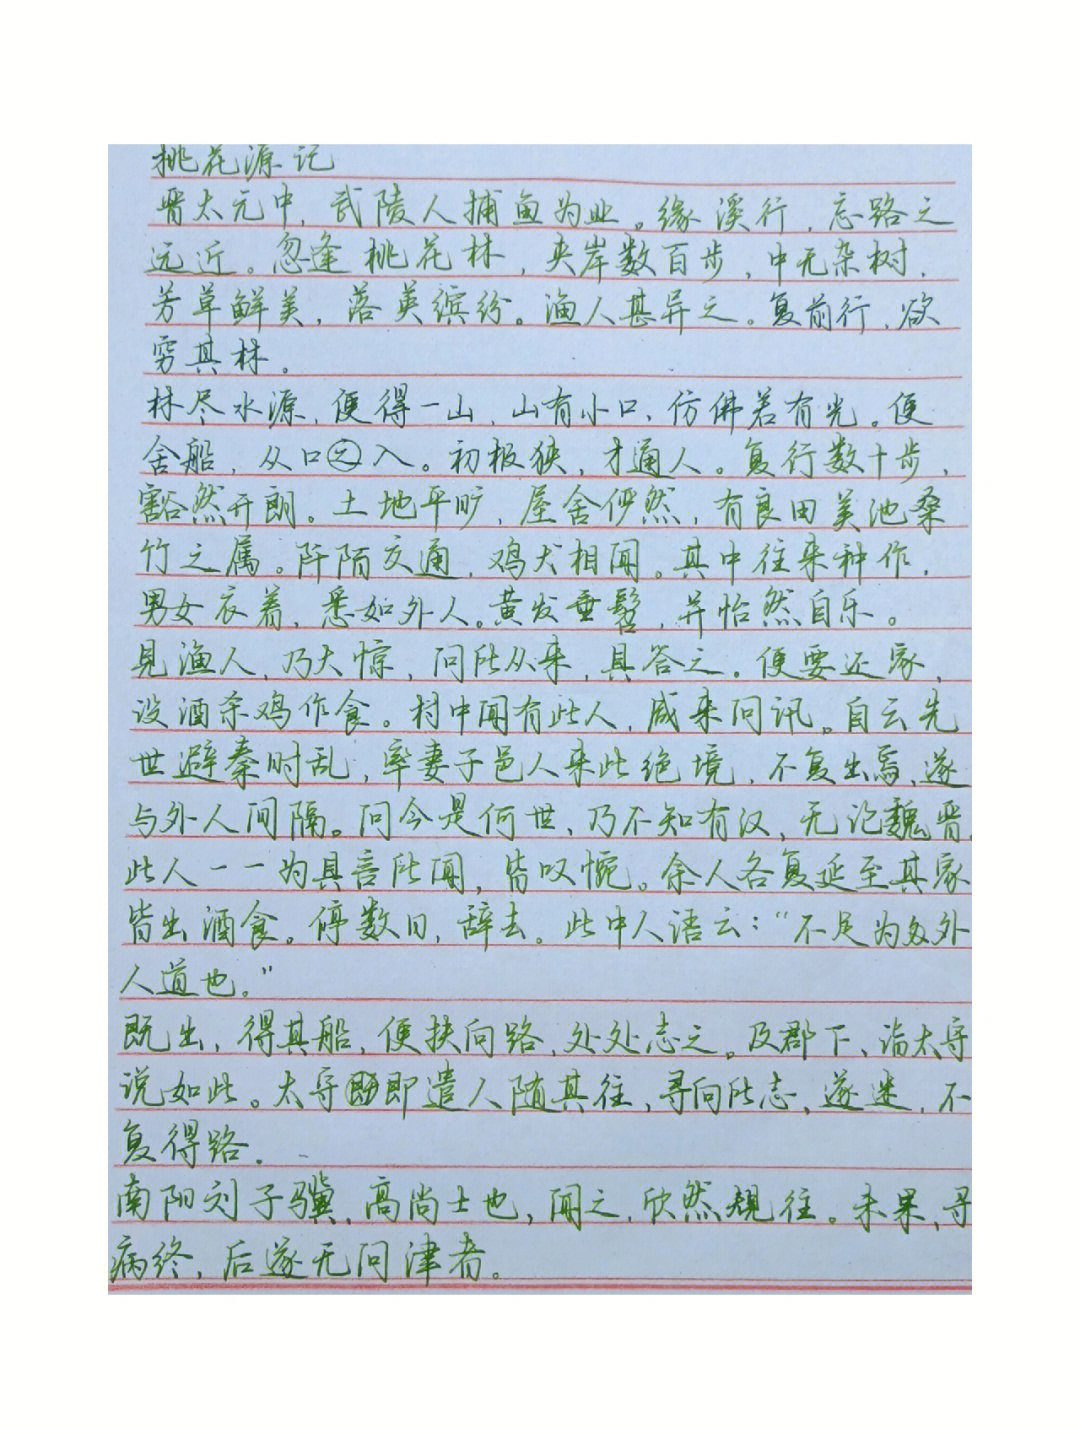 桃花源记
晋太元中,武陵人捕鱼为业。缘溪行,忘路之
远近。忽逢桃花林,夹岸数百步,中无杂树,
芳草鲜美,落英缤纷。渔人甚异之。复前行,欲
穷其林。
林尽水源,便得一山,山有小口,仿佛若有光。便
舍船,从口入。初极狭,才通人。复行数十步,
豁然开朗。土地平旷,屋舍俨然,有良田美池桑
竹之属。阡陌交通,鸡犬相闻。其中往来种作,
男女衣着,悉如外人。黄发垂髫,并怡然自乐。
见渔人,乃大惊,问所从来,具答之。便要还家,
设酒杀鸡作食。村中闻有此人,咸来问讯。自云先
世避秦时乱,率妻子邑人来此绝境,不复出焉,遂
与外人间隔。问今是何世,乃不知有汉,无论魏晋.
此人一一为具言所闻,皆叹惋。余人各复延至其家
皆出酒食。停数日,辞去。此中人语云:“不足为外
人道也。”
既出,得其船,便扶向路,处处志之。及郡下,诣太守
说如此。太守即遣人随其往,寻向所志,遂迷,不
复得路.
南阳刘子骥,高尚士也,闻之,欣然规往。未果,寻
病终,后遂无问津者。